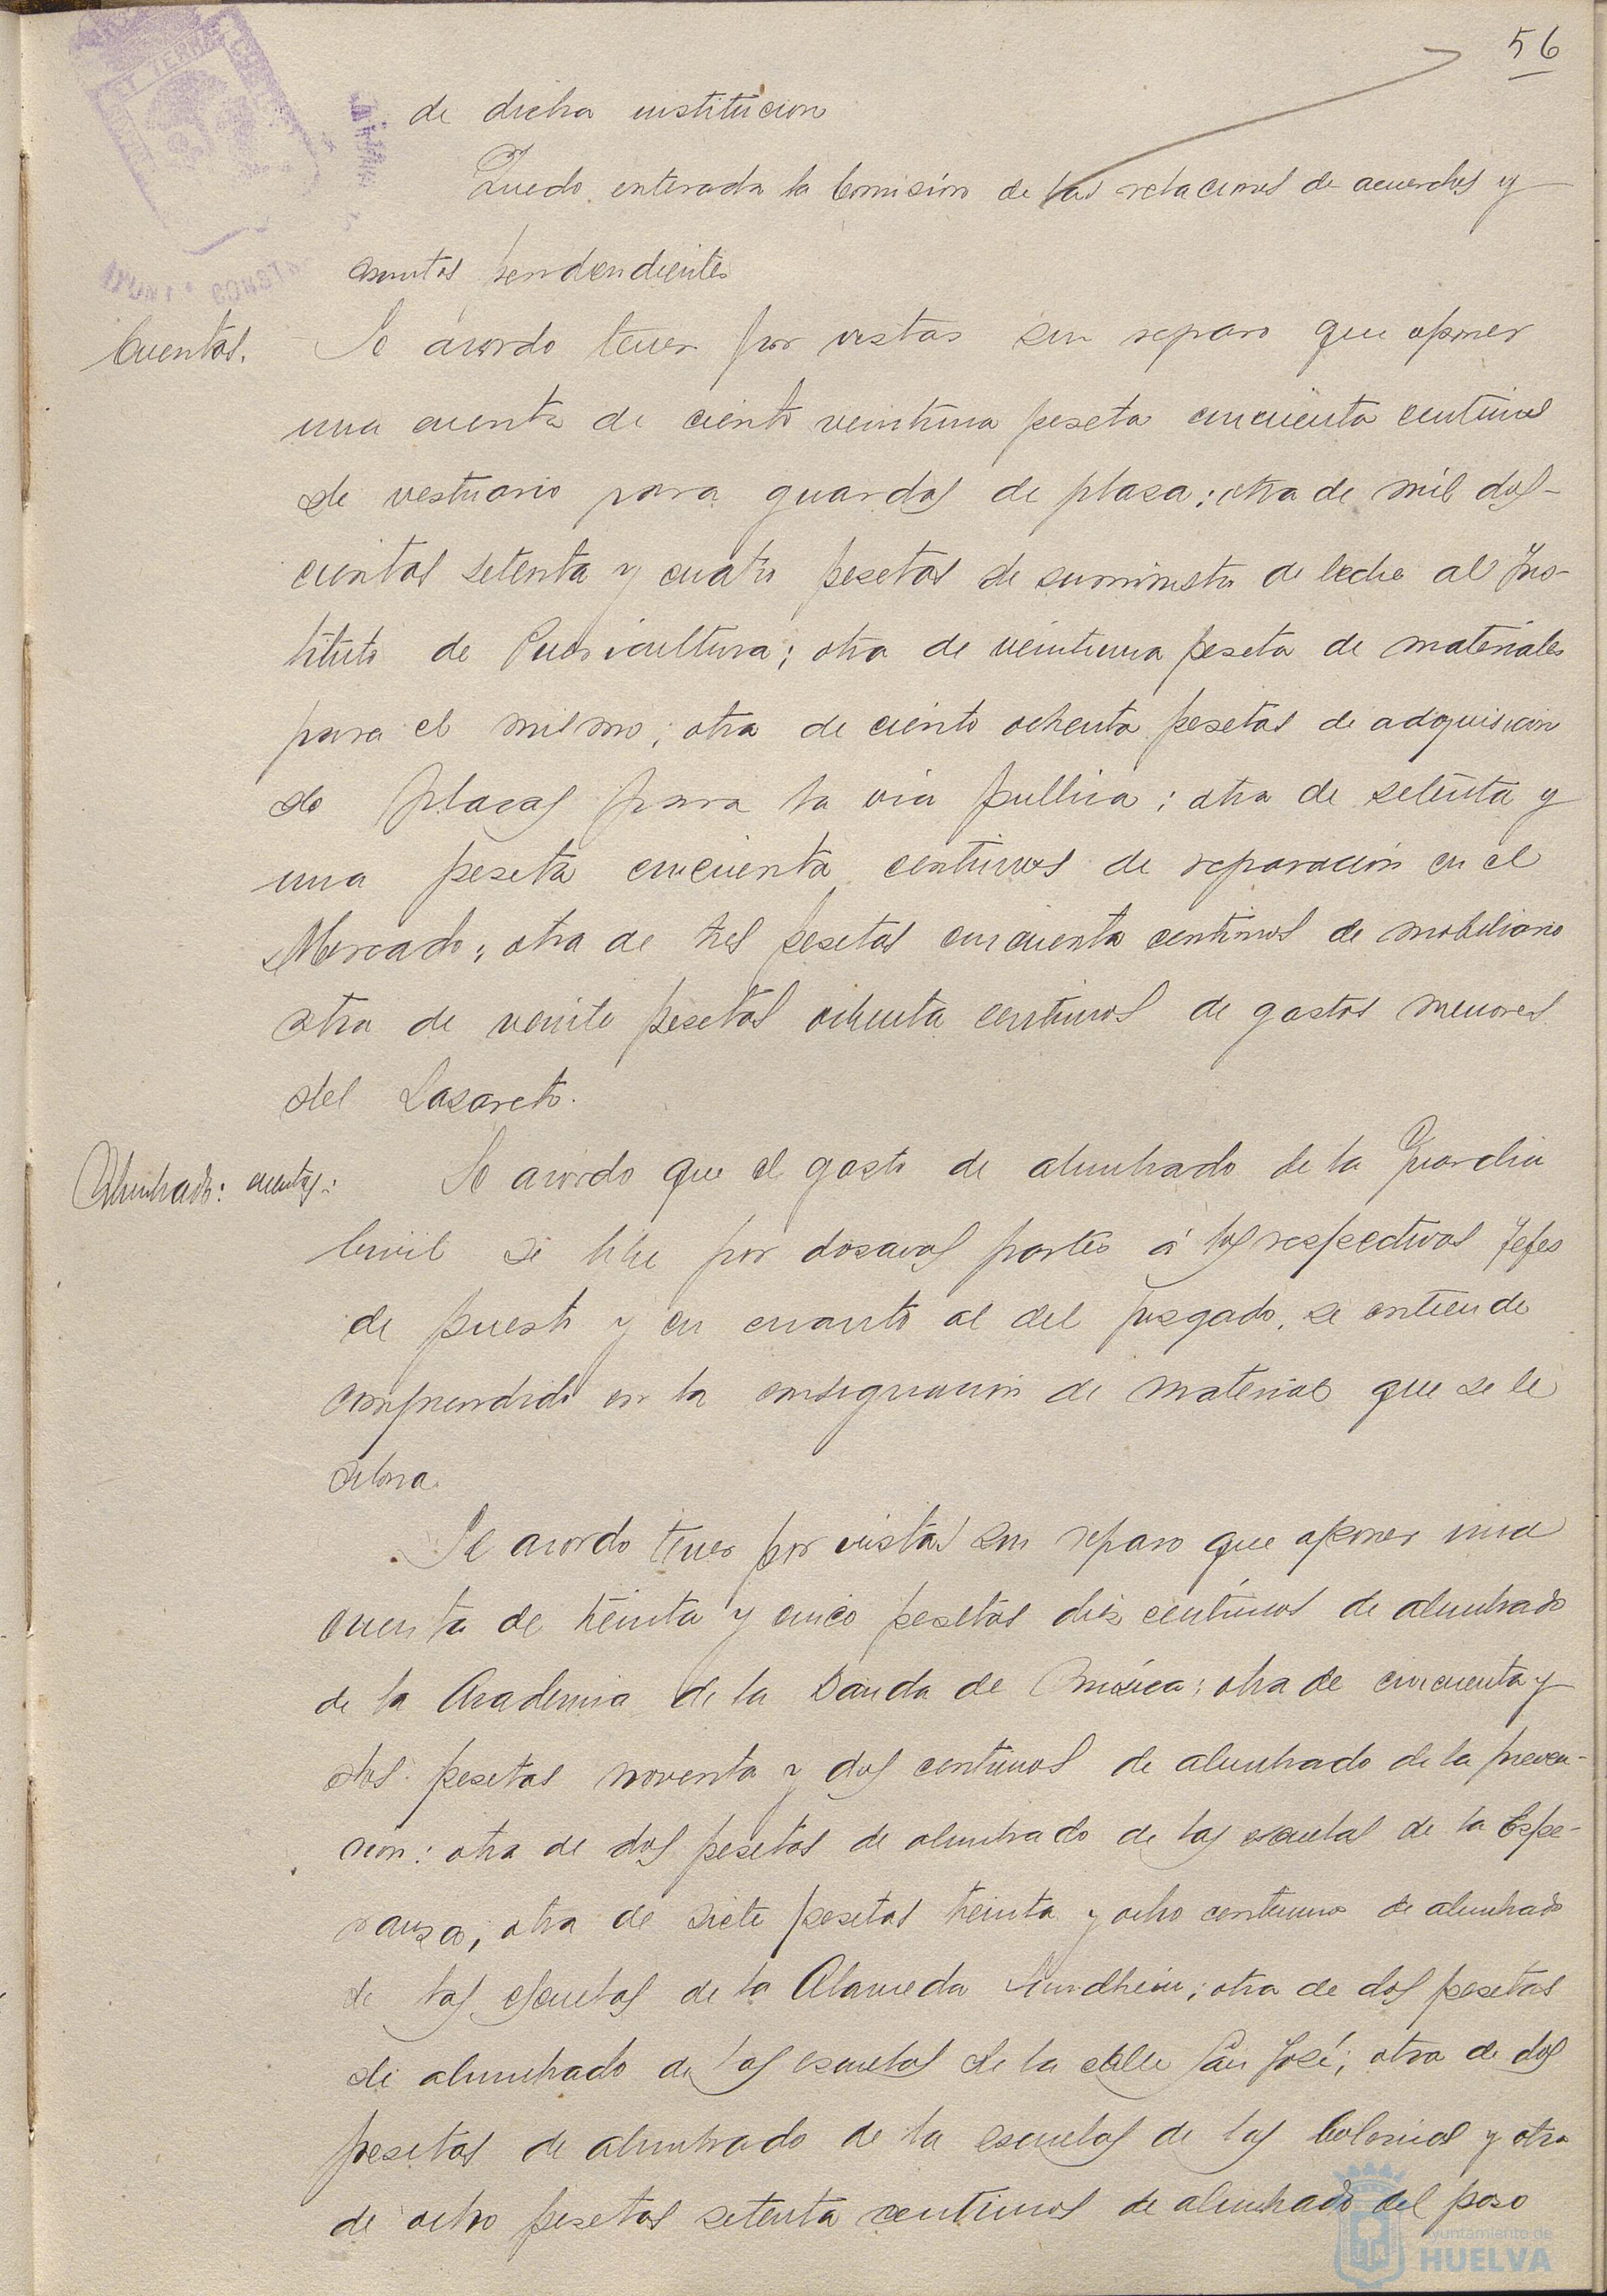 56
de dicha institucion
Quedo enterada la Comisión de las relaciones de acuerdos y
asuntos pendendientes
Cuentas. Se acordo tener por vistas sin reparo que oponer
una cuenta de ciento veintiuna peseta cincuenta centimos
de vestuario para guardas de plaza; otra de mil dos-
cientas setenta y cuatro pesetas de suministro de leche al Ins-
tituto de Puericultura; otra de veintiuna peseta de materiales
para el mismo; otra de ciento ochenta pesetas de adquisicion
de placas para la via publica; otra de setenta y
una peseta cincuenta centimos de reparación en el
Mercado; otra de tres pesetas cincuenta centimos de mobiliario
otra de veinte pesetas ochenta centimos de gastos menores
del Lazareto.
Alumbrado: cuentas: Se acordo que el gasto de alumbrado de la Guardia
Civil se libre por dozavas partes á los respectivos Jefes
de puesto y en cuanto al del juzgado, se entiende
comprendido en la consignacion de material que se le
abona.
Se acordo tener por vistas sin reparo que oponer una
cuenta de treinta y cinco pesetas diez centimos de alumbrado
de la Academia de la Banda de Música; otra de cincuenta y
dos pesetas noventa y dos centimos de alumbrado de la preven-
cion; otra de dos pesetas de alumbrado de las escuelas de la Espe-
ranza; otra de siete pesetas treinta y ocho centimos de alumbrado
de las escuelas de la Alameda Sundheim; otra de dos pesetas
de alumbrado de las escuelas de la calle San José; otra de dos
pesetas de alumbrado de la escuelas de las Colonias y otra
de ocho pesetas setenta centimos de alumbrado del paso
Ayuntamiento de
HUELVA